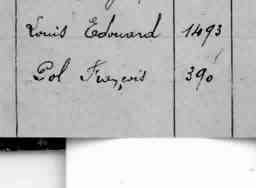 Louis Edouard 1493
Pol François 390